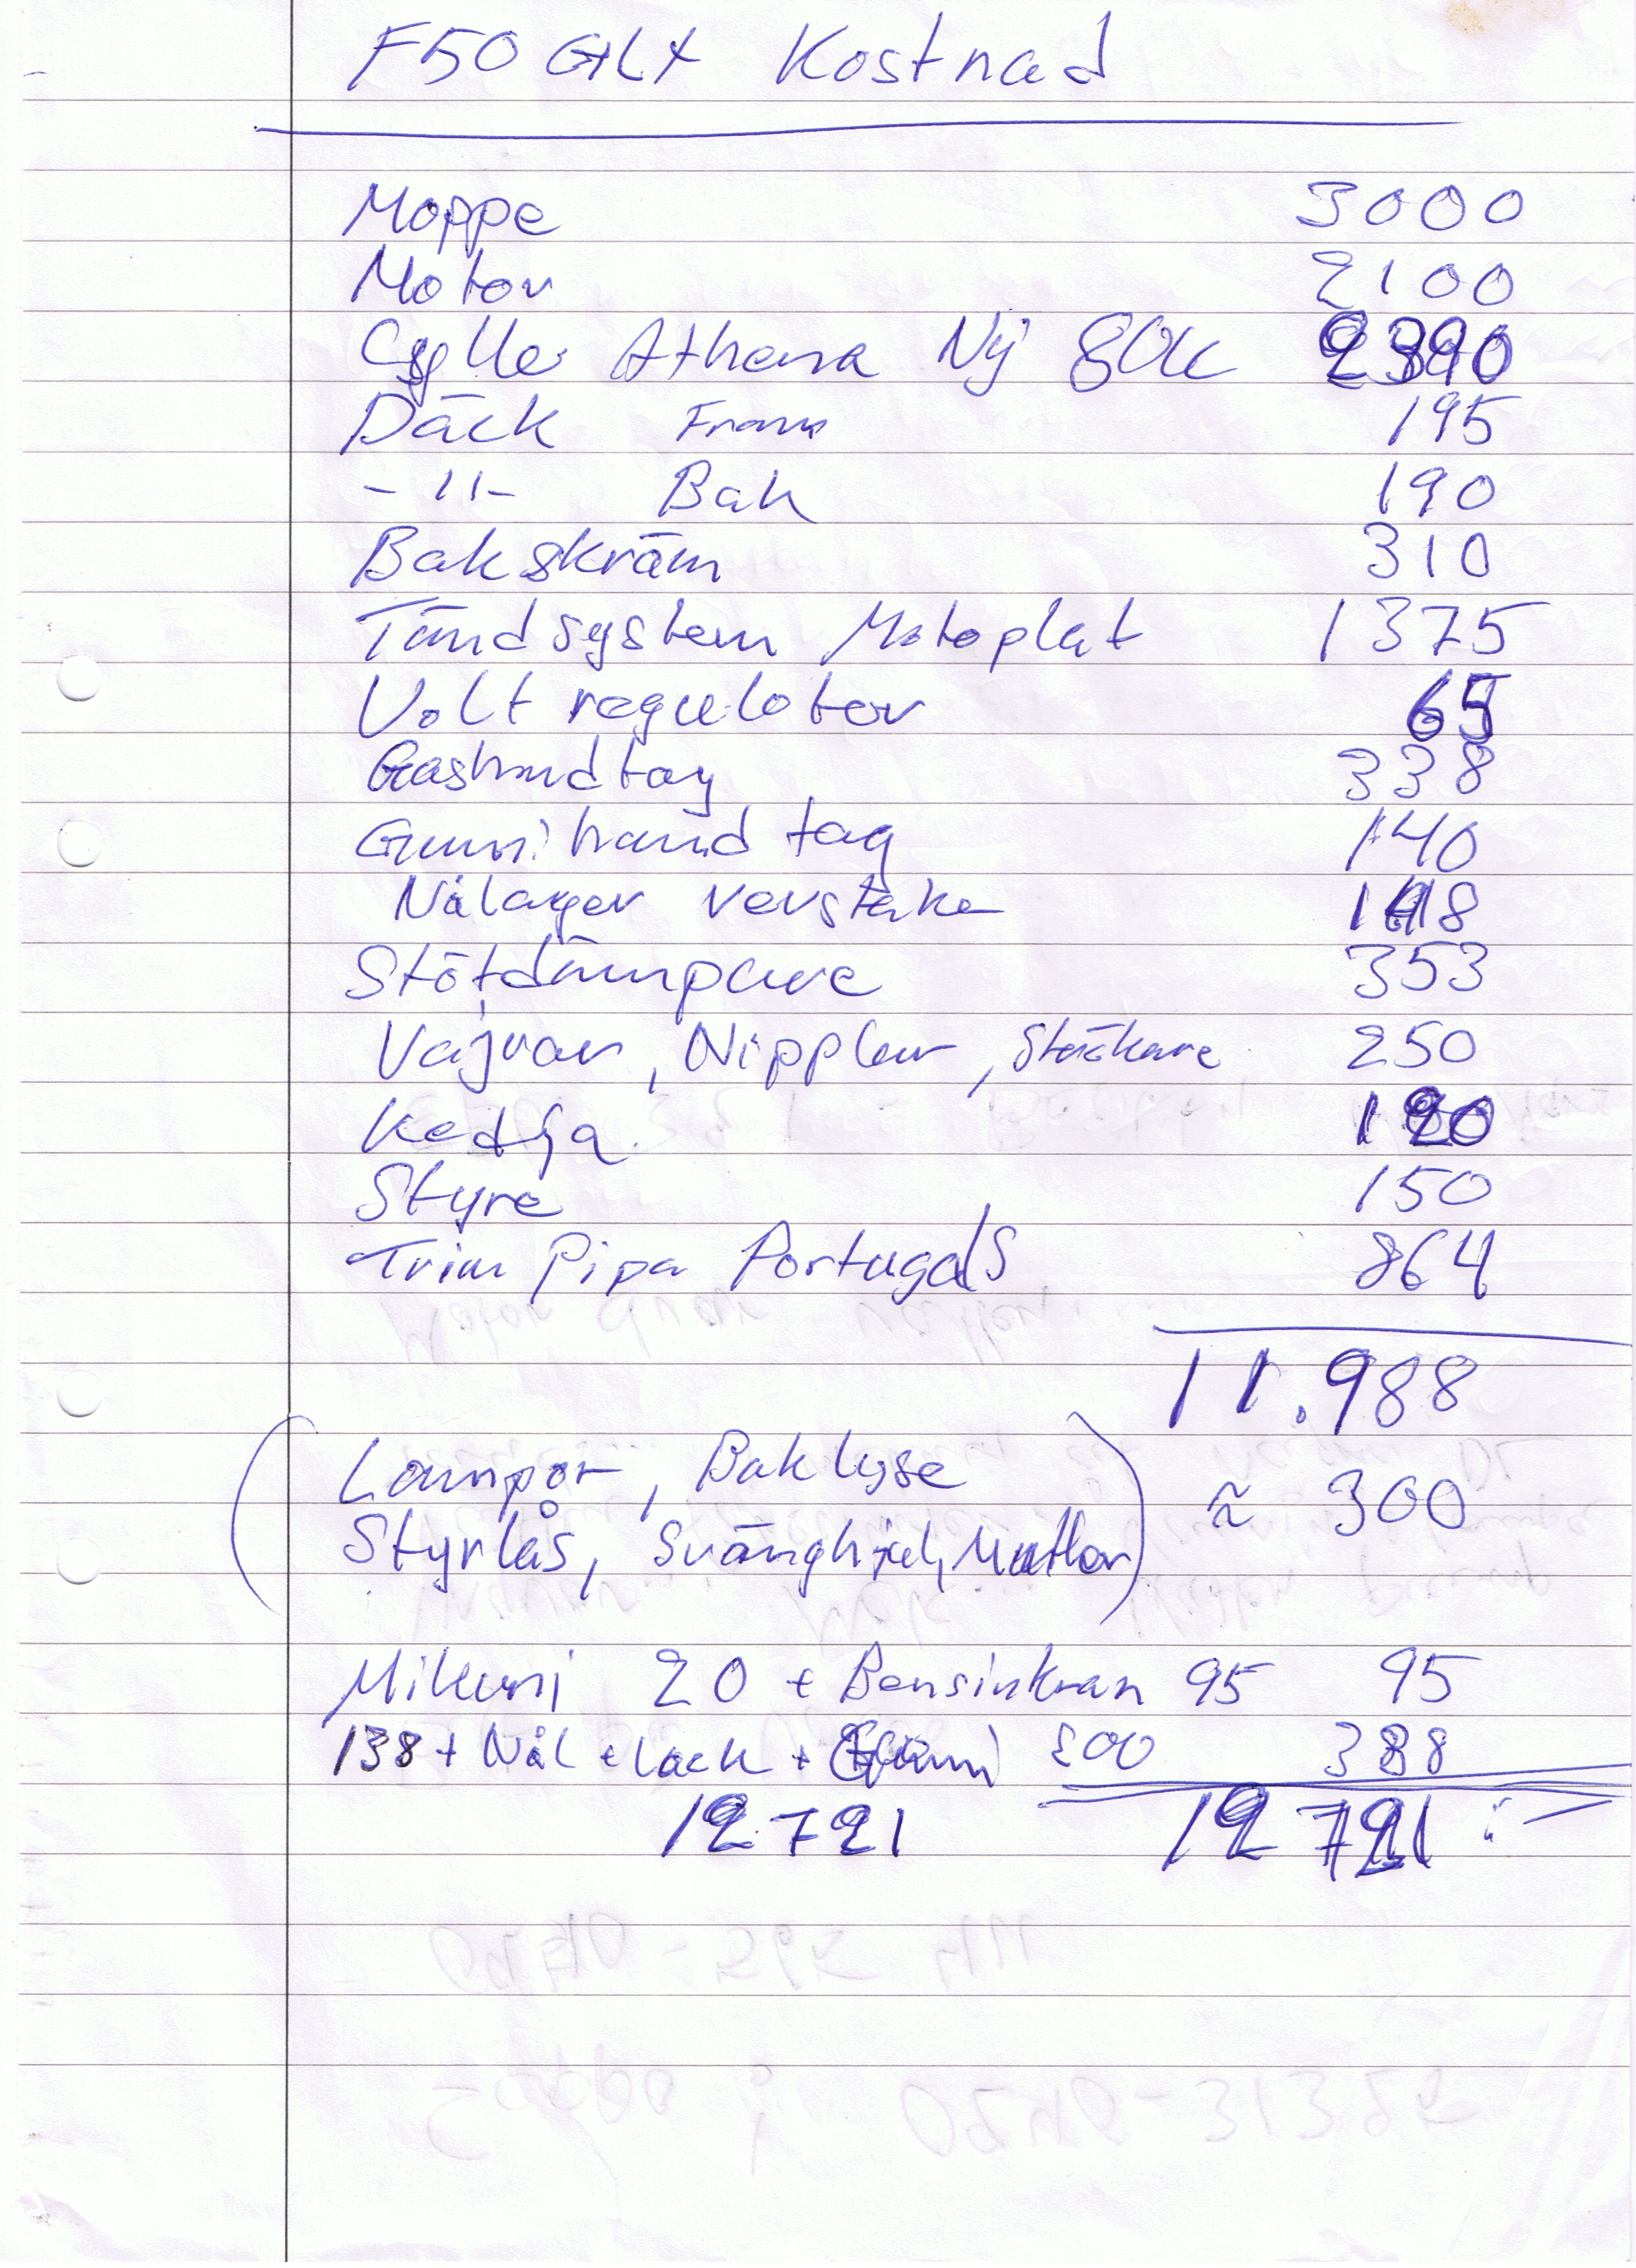 F50 GLX Kostnad
Moppe 3000
Motor 2100
Cylle Athena Ny 80cc 2390
Däck Fram 195
-11- Bak 190
Bakskräm 310
Tändsystem Motoplat 1375
Volt regulotor 65
Gashandtag 338
Gummihandtag 140
Nålager vevstake 148
Stötdämpare 353
Vajrar, Nipplar, Sträckare 250
Kedja 120
Styre 150
Trim Pipa Portugals 864
11.988
(Lampor, Baklyse
≈ 300
Styrlås, Svänghjul, Muttlar)
Mikuni 20 + Bensinkran 95 95
138 + Nål + lack + Gummi 200 338
12721 12721:-